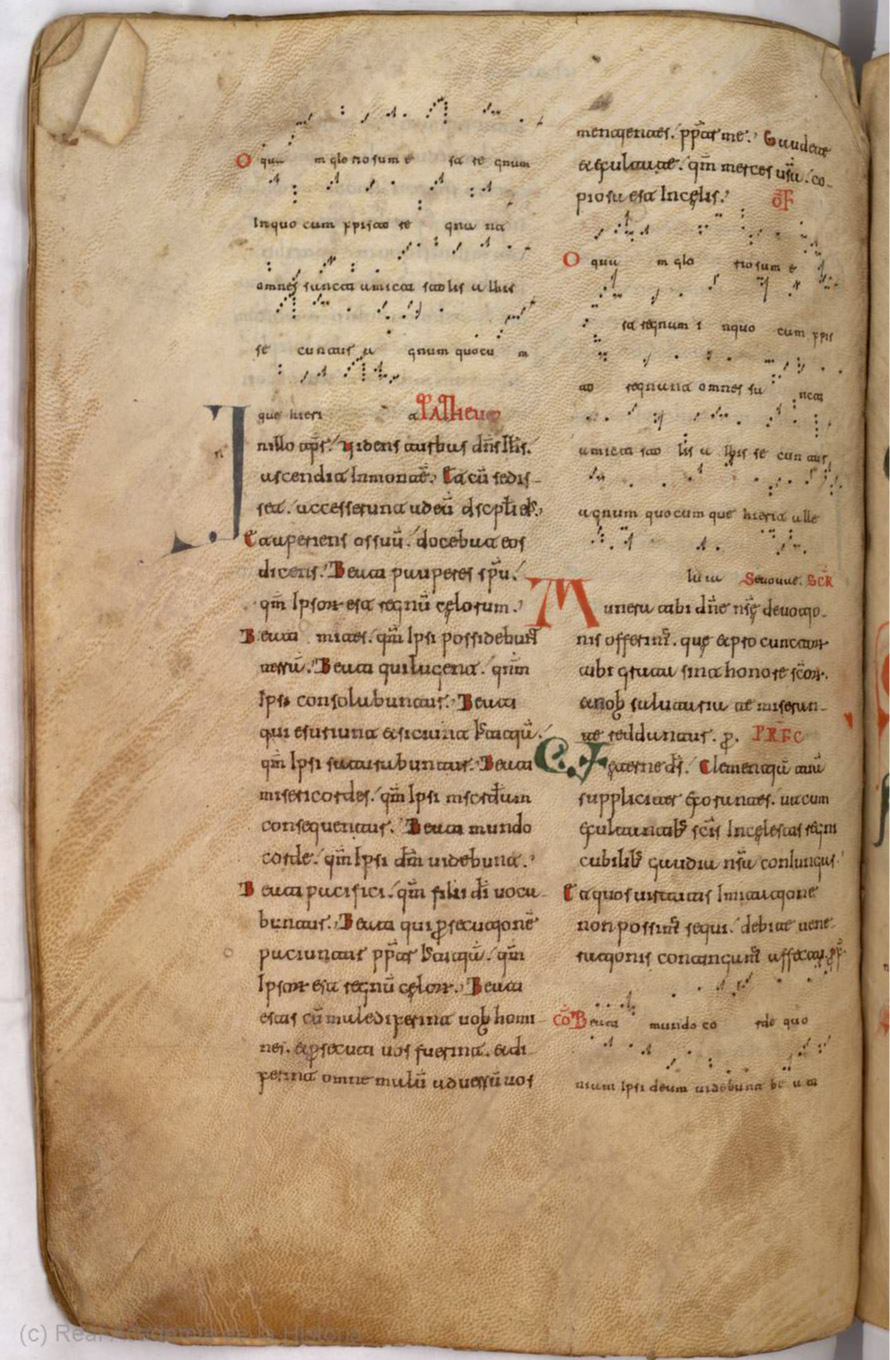 O qua m glo rio sum e st re gnum
In quo cum xp̄isto re gna nt
omnes sancti amicti stolis albis
se cuntur a gnum quocu m
que hieri t Matheum
In illo tp̄r. Videns turbas dn̄s ih̄s.
ascendit in montē. Et cū sedis-
set. accesserunt ad eū discpl̄i eiꝰ.
Et aperiens os suū. docebat eos
dicens. Beati pauperes sp̄u.
qm̄ ipsoꝝ est regnū cęlorum.
Beati mites. qm̄ ipsi possidebunt
terrā. Beati qui lugent. qnm̄
ipsi consolabuntur. Beati
qui esuriunt et siciunt iusticiā.
qm̄ ipsi saturabuntur. Beati
misericordes. qm̄ ipsi mscrd̄iam
consequentur. Beati mundo
corde. qm̄ ipsi dm̄ videbunt.
Beati pacifici. qm̄ filii dī voca-
buntur. Beati qui ꝑsecutionē
paciuntur ppt̄er iusticiā. qm̄
ipsoꝝ est regnū cęloꝝ. Beati
estis cū maledixerint vob̄ homi-
nes. et ꝑsecuti vos fuerint. et di-
xerint omne malū adversū vos
mentientes. ppt̄er me. Gaudete
et exultate. qm̄ merces vr̄a. co-
piosa est in cęlis. ōF
O qua m glo riosum e
st regnum i nquo cum xpis
to regnant omnes sa ncti
amicti sto lis a lbis se cuntur
agnum quocumque hierit alle
lu ia Seuouae. SCR̄
Munera tibi dn̄e nr̄ę devotio-
nis offerim̄. quę et pro cunctoꝝ
tibi grata sint honore sc̄oꝝ.
et nob̄ salutaria te miseran-
te reddantur. ꝑ. PREFC
Et. eterne ds̄. Clementiā tuā
suppliciter exorantes. ut cum
exultantib̄ sc̄is in cęlestis regni
cubilib̄ gaudia nr̄a coniungas.
Et quos virtutis imitatione
non possim̄ sequi. debite vene-
rationis contingam̄ affectu. ꝑ
cō Beati mundo co rde quo
niam ipsi deum videbunt be a ti